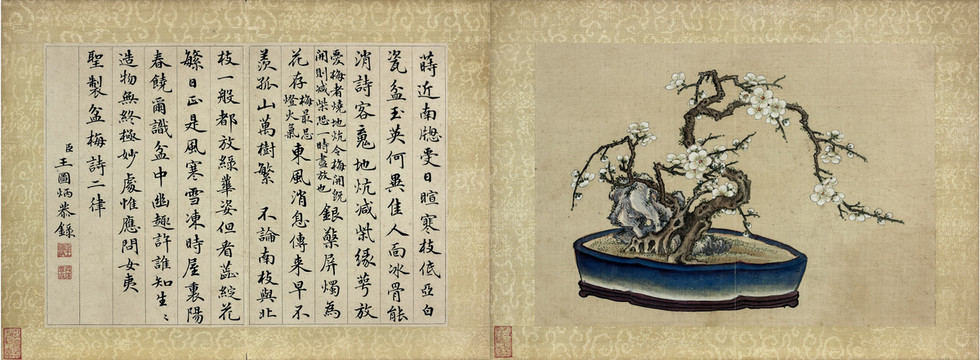 蒔近南牕受日暄寒枝低亞白
瓷盆玉英何異佳人面冰骨能
消詩客䰟地炕減柴緣萼放
愛梅者燒地炕令梅開旣
開則減柴恐一時盡放也
銀檠屏燭為
花存
梅最忌
燈火氣
東風消息傳来早不
羨孤山萬樹繁 不論南枝與北
枝一般都放綠華姿但看蕋綻花
繁日正是風寒雪凍時屋裏陽
春饒爾識盆中幽趣許誰知生〻
造物無終極妙處惟應問女夷
聖製盆梅詩二律
臣王圖炳恭錄